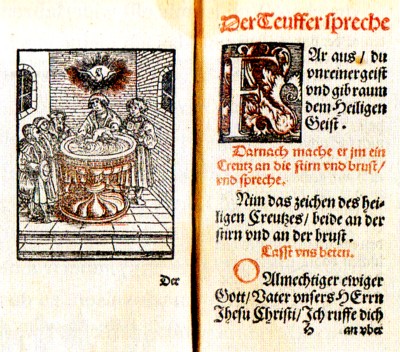 Der
Der Teuffer spreche
FAr aus / du
vnreiner geist
vnd gib raum
dem Heiligen
Geist.
Darnach mache er im ein
Creutz an die stirn vnd brust /
vnd spreche.
Nim das zeichen des hei-
ligen Creutzes / beide an der
stirn vnd an der brust.
Lasst vns beten.
O Almechtiger ewiger
Gott / Vater vnsers HErrn
Jhesu Christi / Ich ruffe dich
h an vber